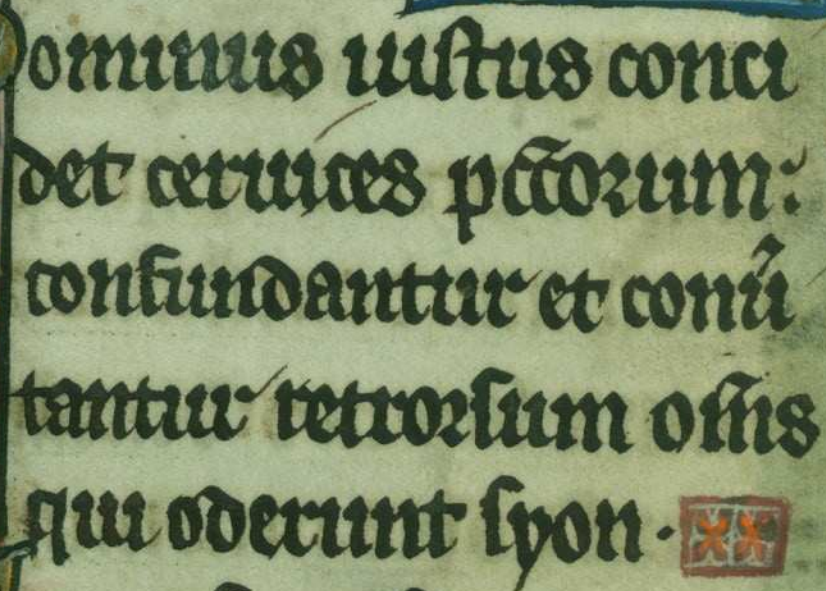 Dominus iustus conci
det ceruices pct̄orum:
confundantur et conuͥ
tantur retrorsum om̄s
qui oderunt syon ·